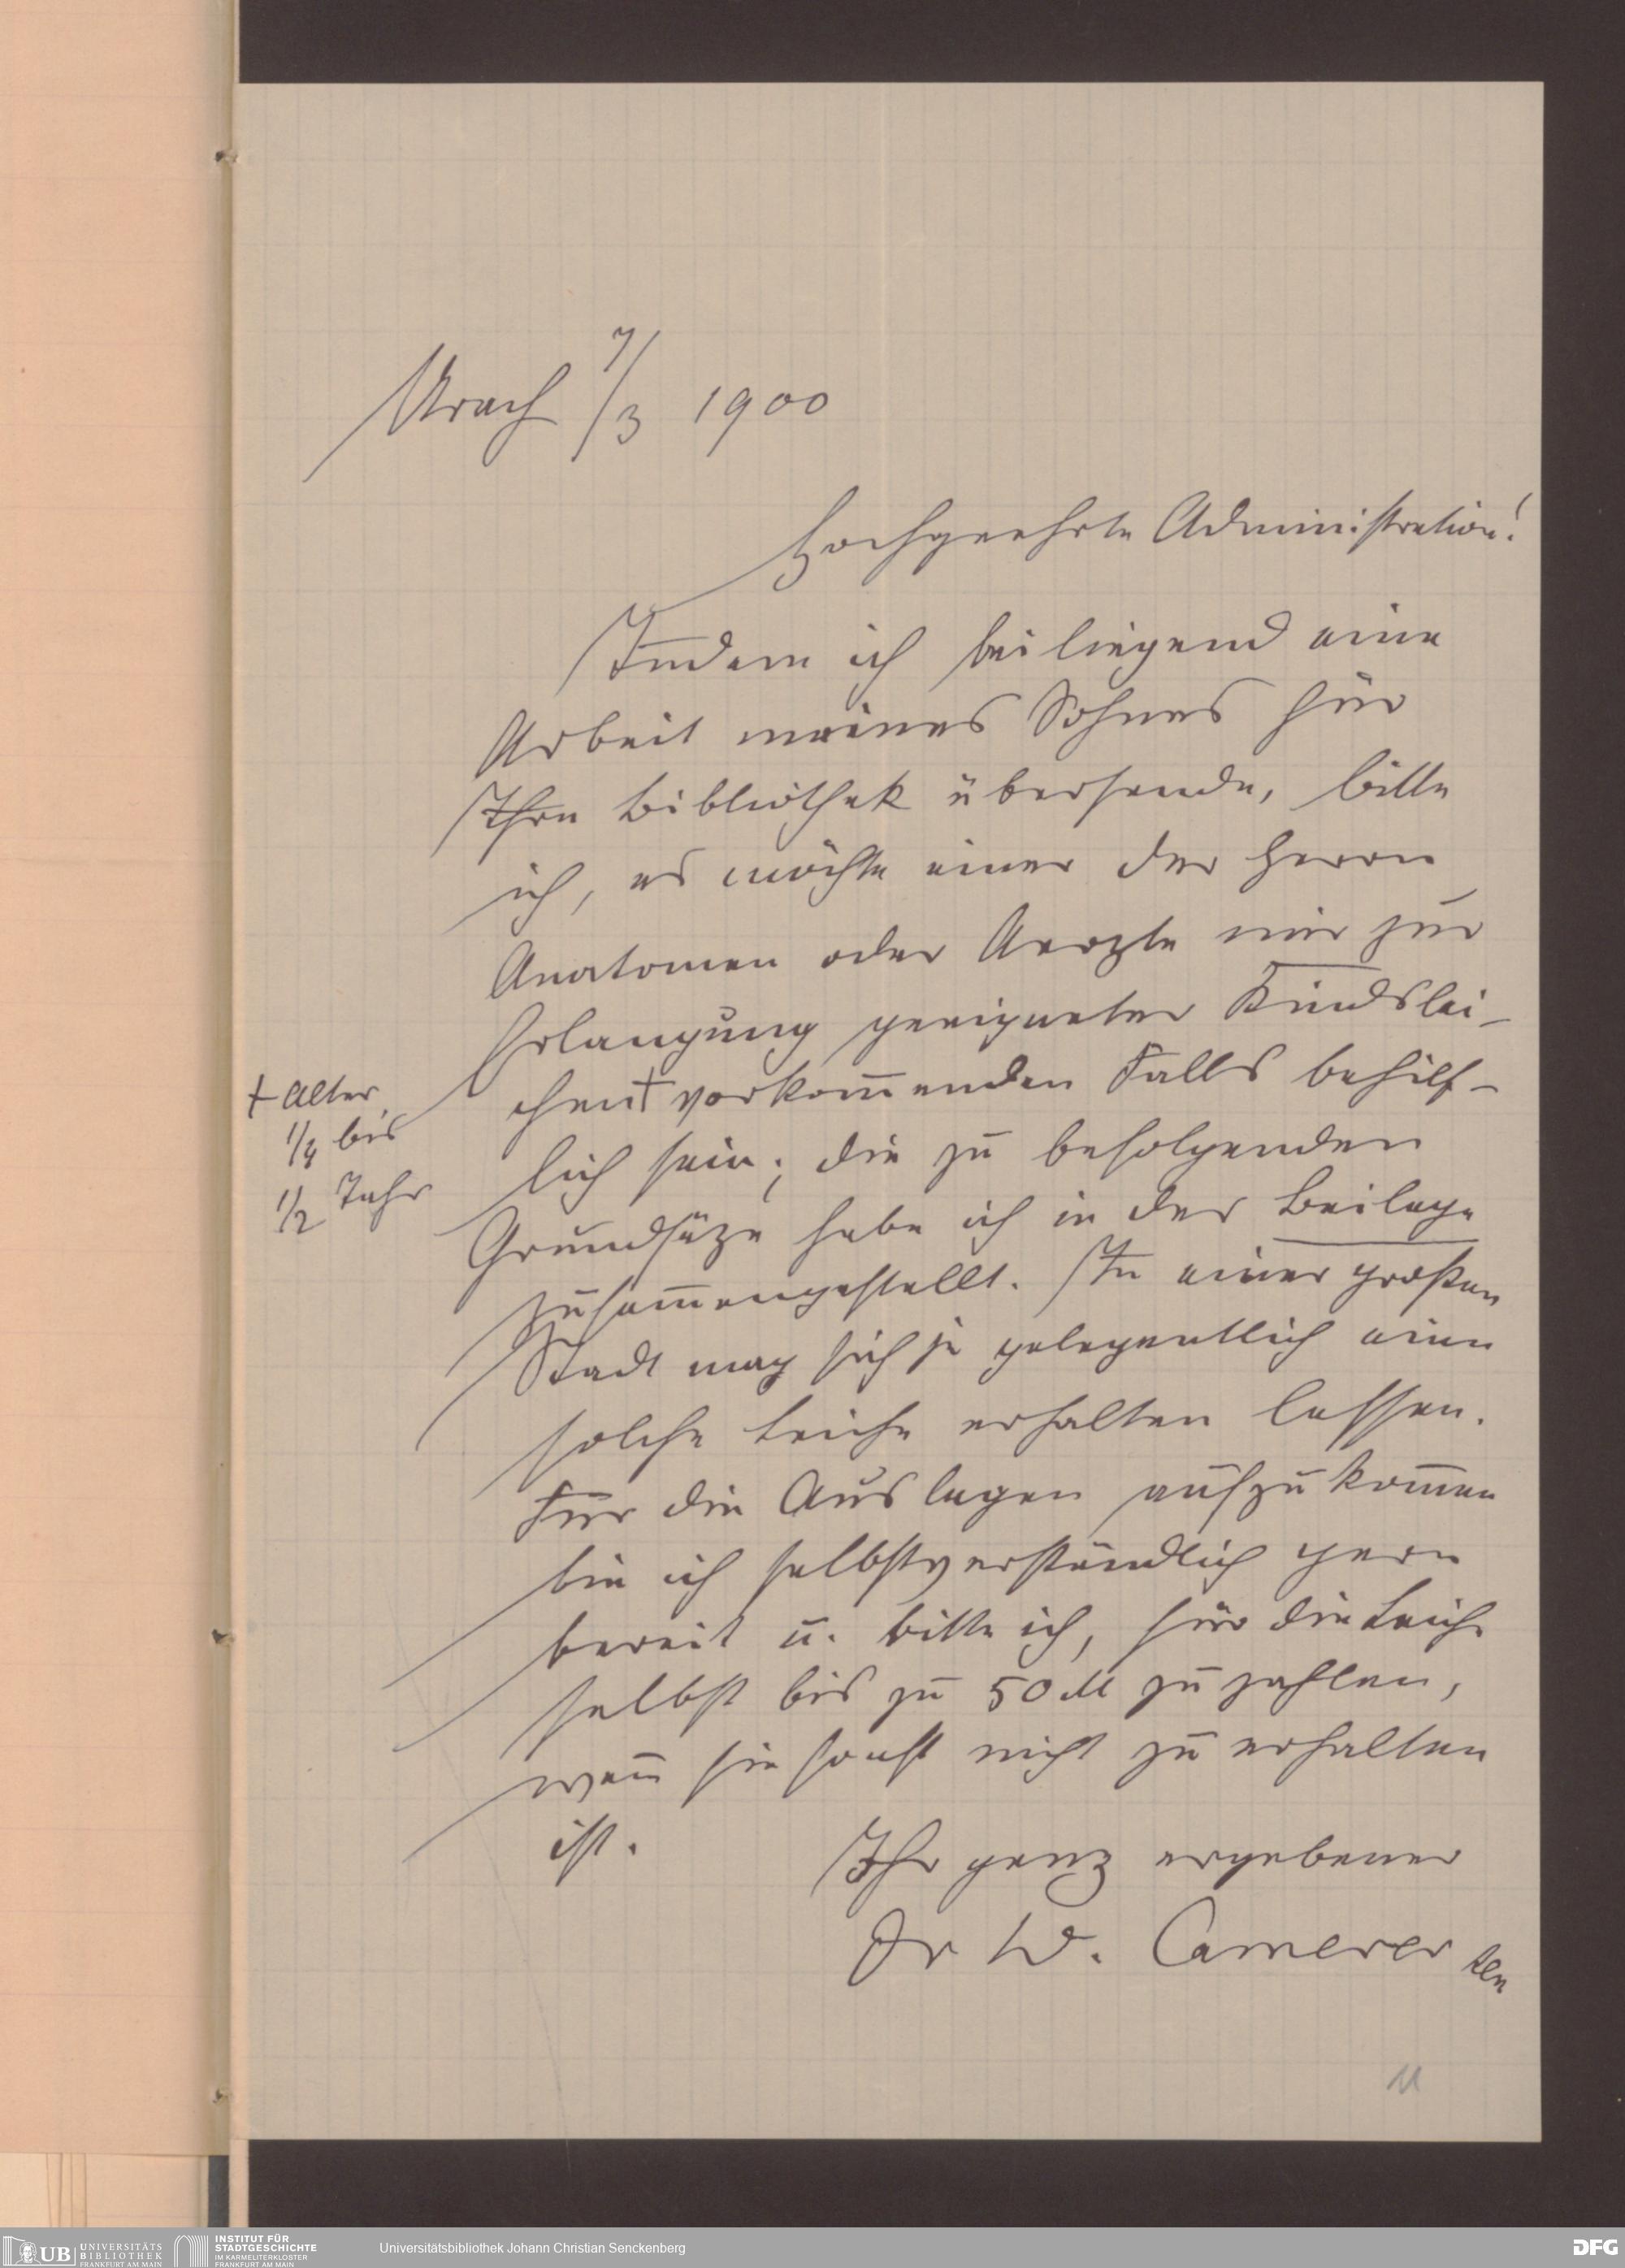 Urach 7/3 1900
Hochgeehrte Administration!
Indem ich beiliegend eine
Arbeit meines Sohnes für
Ihre Bibliothek übersende, bitte
ich, es möchte einer der Herrn
Anatomen oder Aerzte mir zur
Erlangung geeigneter Kindslei-
chen + vorkom̅enden Falls behilf-
+ Alter
1/4 bis
1/2 Jahr
lich sein; die zu befolgenden
Grundsäze habe ich in der Beilage
zusam̅engestellt. In einer großen
Stadt mag sich ja gelegentlich eine
solche Leiche erhalten lassen.
Für die Auslagen aufzukom̅en
bin ich selbstverständlich gern
bereit u. bitte ich, für die Leiche
selbst bis zu 50 M zu zahlen,
wen̅ sie sonst nicht zu erhalten
ist.
Ihr ganz ergebener
Dr W. Camerer sen
11
UB UNIVERSITÄTS
BIBLIOTHEK
FRANKFURT AM MAIN
INSTITUT FÜR
STADTGESCHICHTE
IM KARMELITERKLOSTER
FRANKFURT AM MAIN
Universitätsbibliothek Johann Christian Senckenberg
DFG